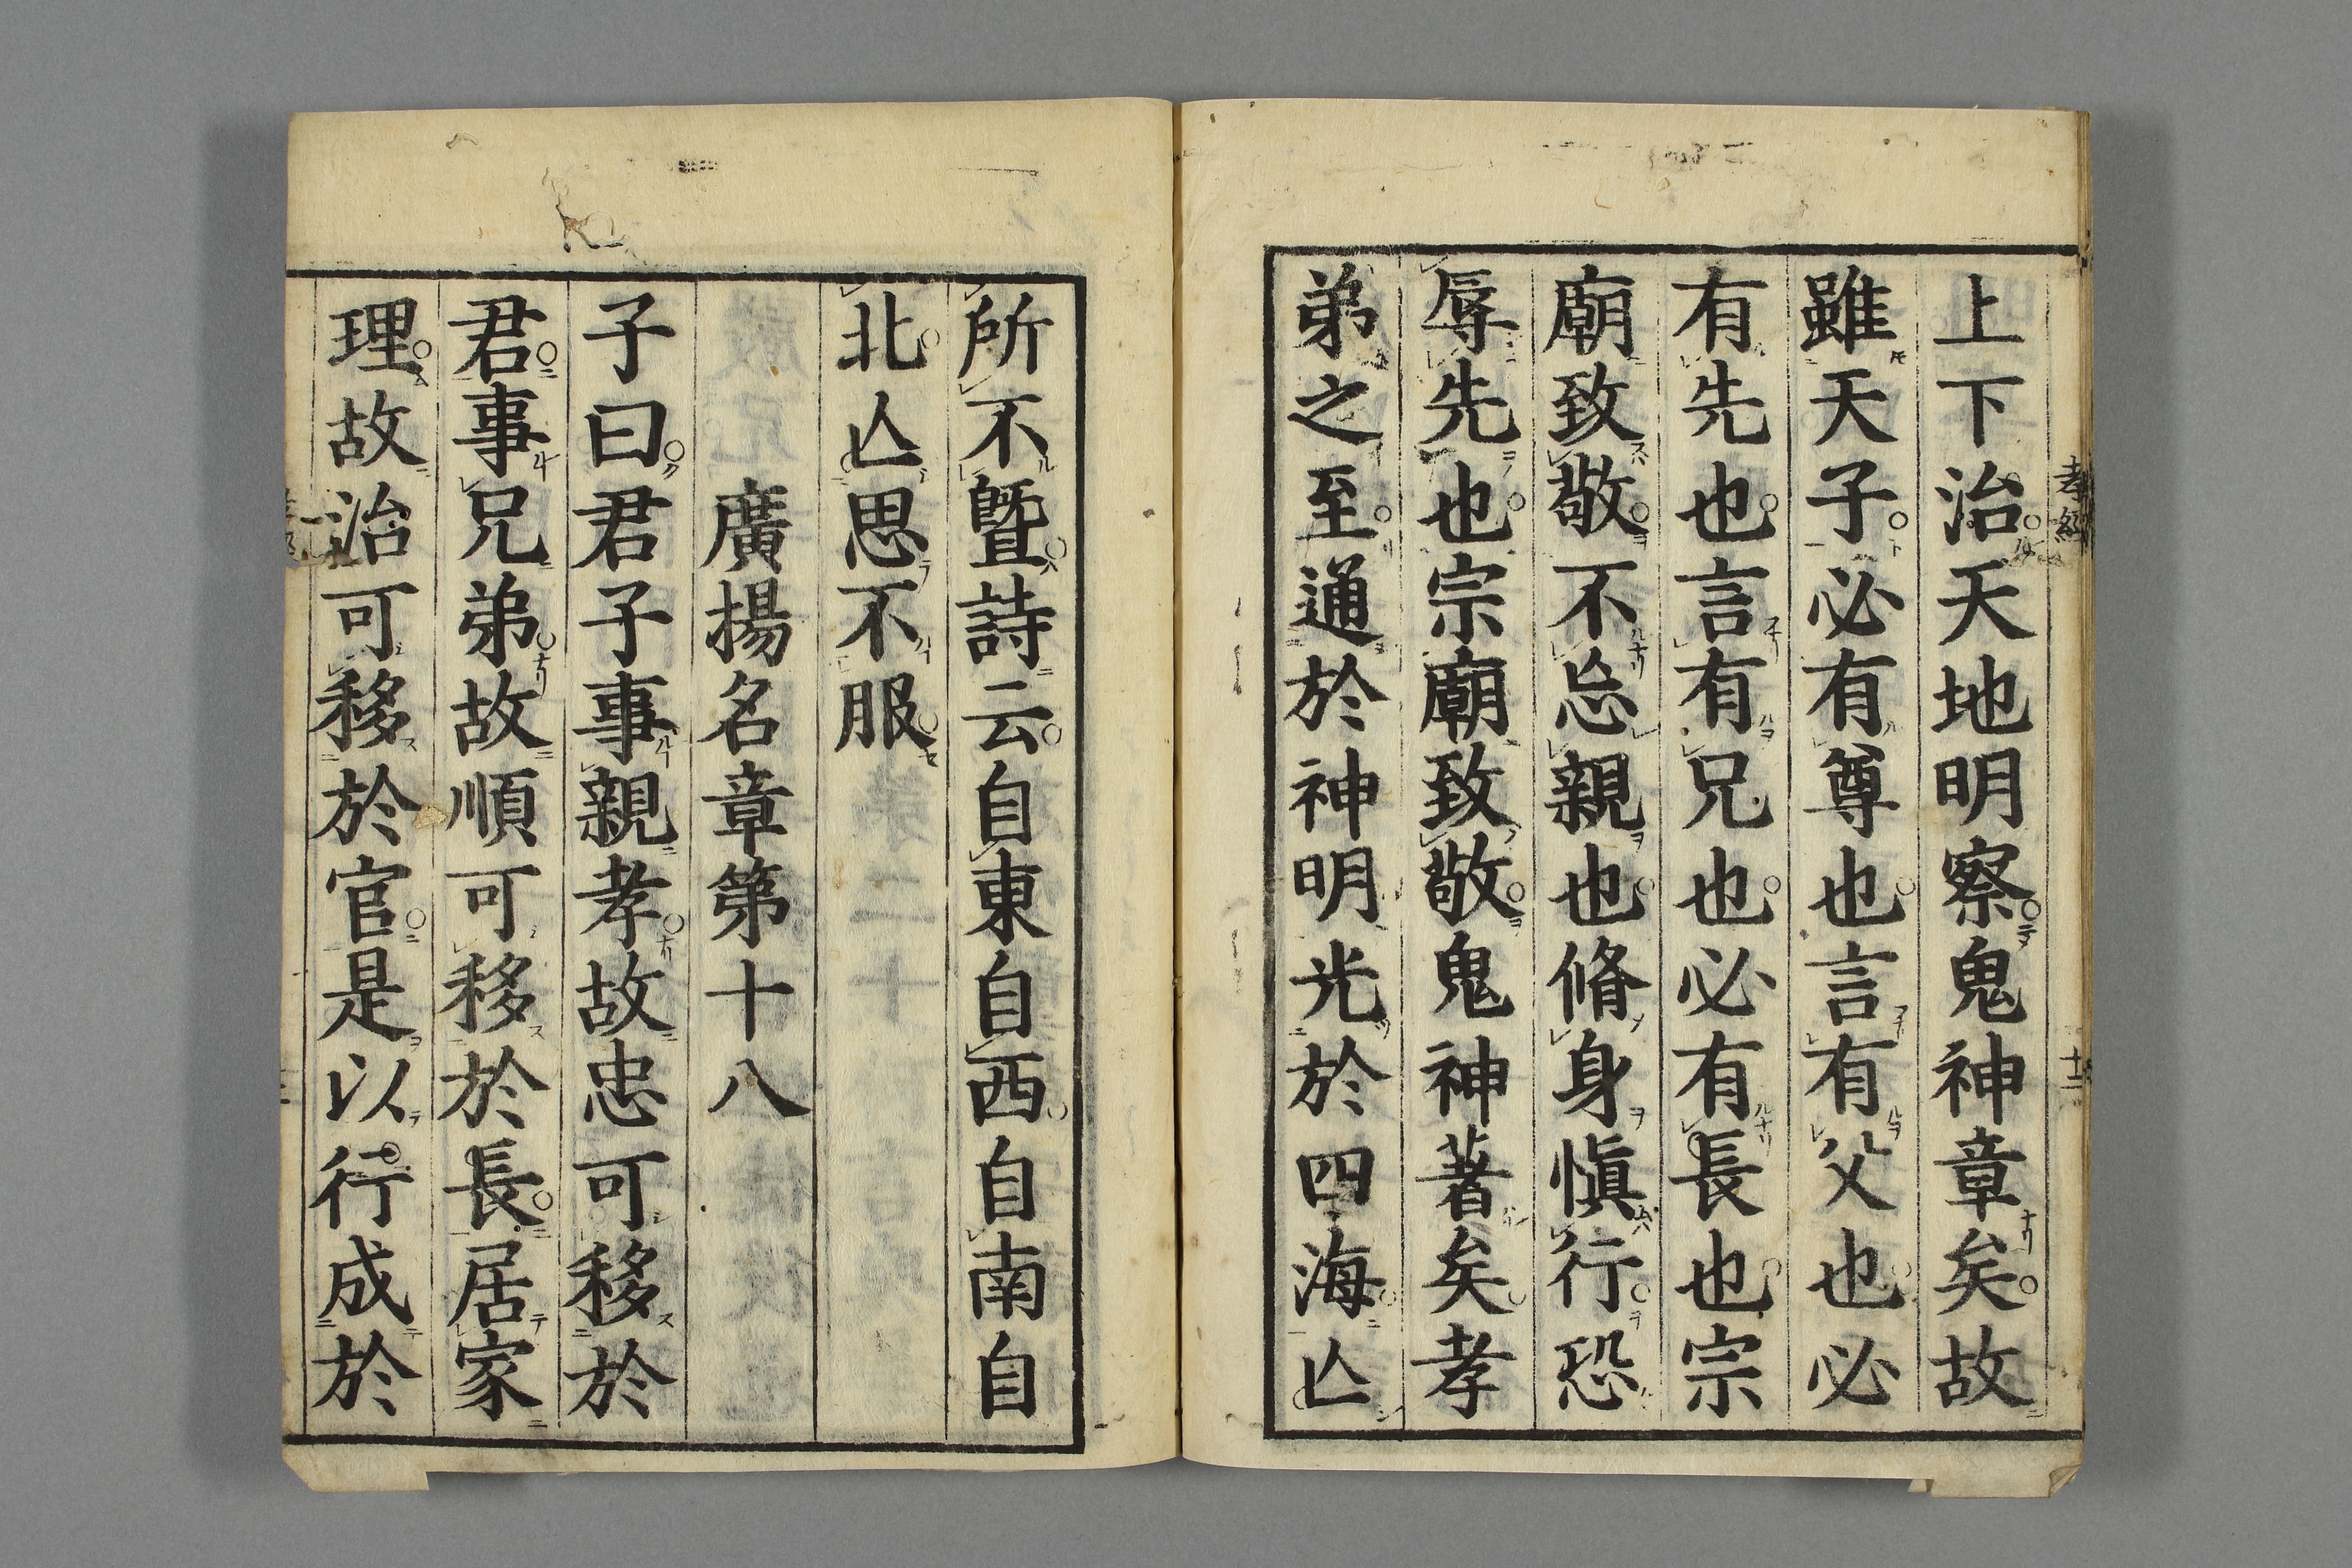 上下治天地明察鬼神章矣故
雖天子必有尊也言有父也必
有先也言有兄也必有長也宗
廟致敬不忘親也脩身慎行恐
辱先也宗廟致敬鬼神著矣孝
弟之至通於神明光於四海亾
所不曁詩云自東自西自南自
北亾思不服
廣揚名章第十八
子曰君子事親孝故忠可移於
君事兄弟故順可移於長居家
理故治可移於官是以行成於
孝經
十二